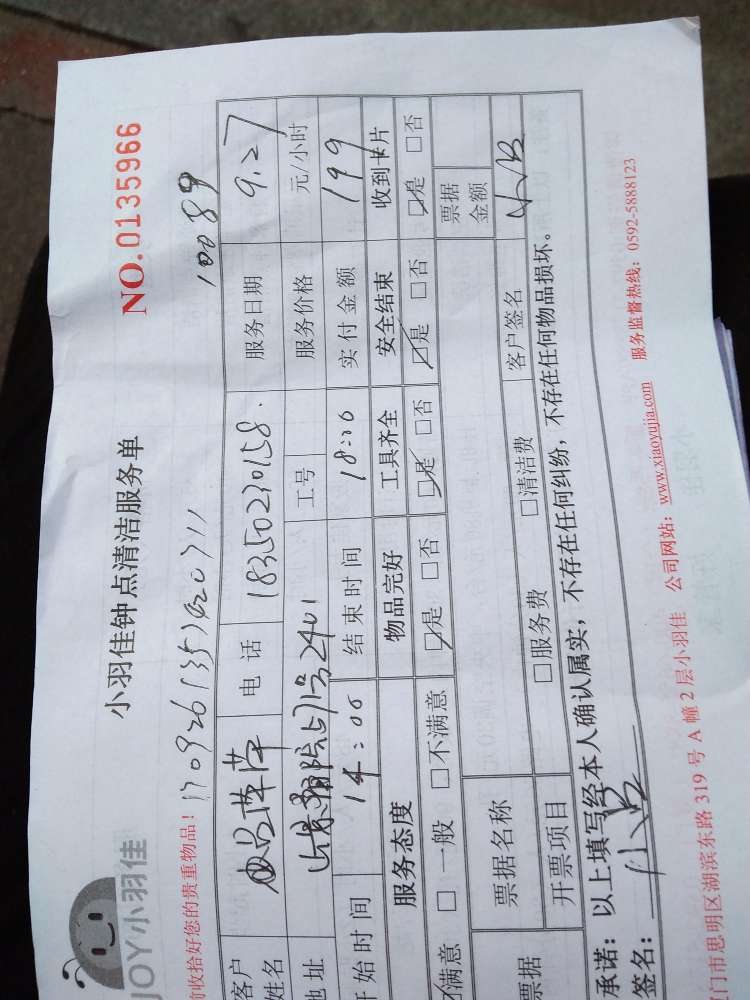 JOY小羽佳
小羽佳钟点清洁服务单
NO.0135966
前收拾好您的贵重物品! 1709261351420711
10089
客户姓名 萍萍 电话 18350230158. 服务日期 9.27
地址 2401 工号 服务价格 元/小时
开始时间 14:00 结束时间 18:00 实付金额 199
服务态度 物品完好 工具齐全 安全结束 收到卡片
满意 □一般 □不满意 □是 □否 □是 □否 □是 □否 □是 □否
票据 票据名称 票据金额
开票项目 □服务费 □清洁费 客户签名
承诺: 以上填写经本人确认属实,不存在任何纠纷,不存在任何物品损坏。
签名:
门市思明区湖滨东路 319 号 A 幢 2 层小羽佳 公司网站: www.xiaoyujia.com 服务监督热线: 0592-5888123